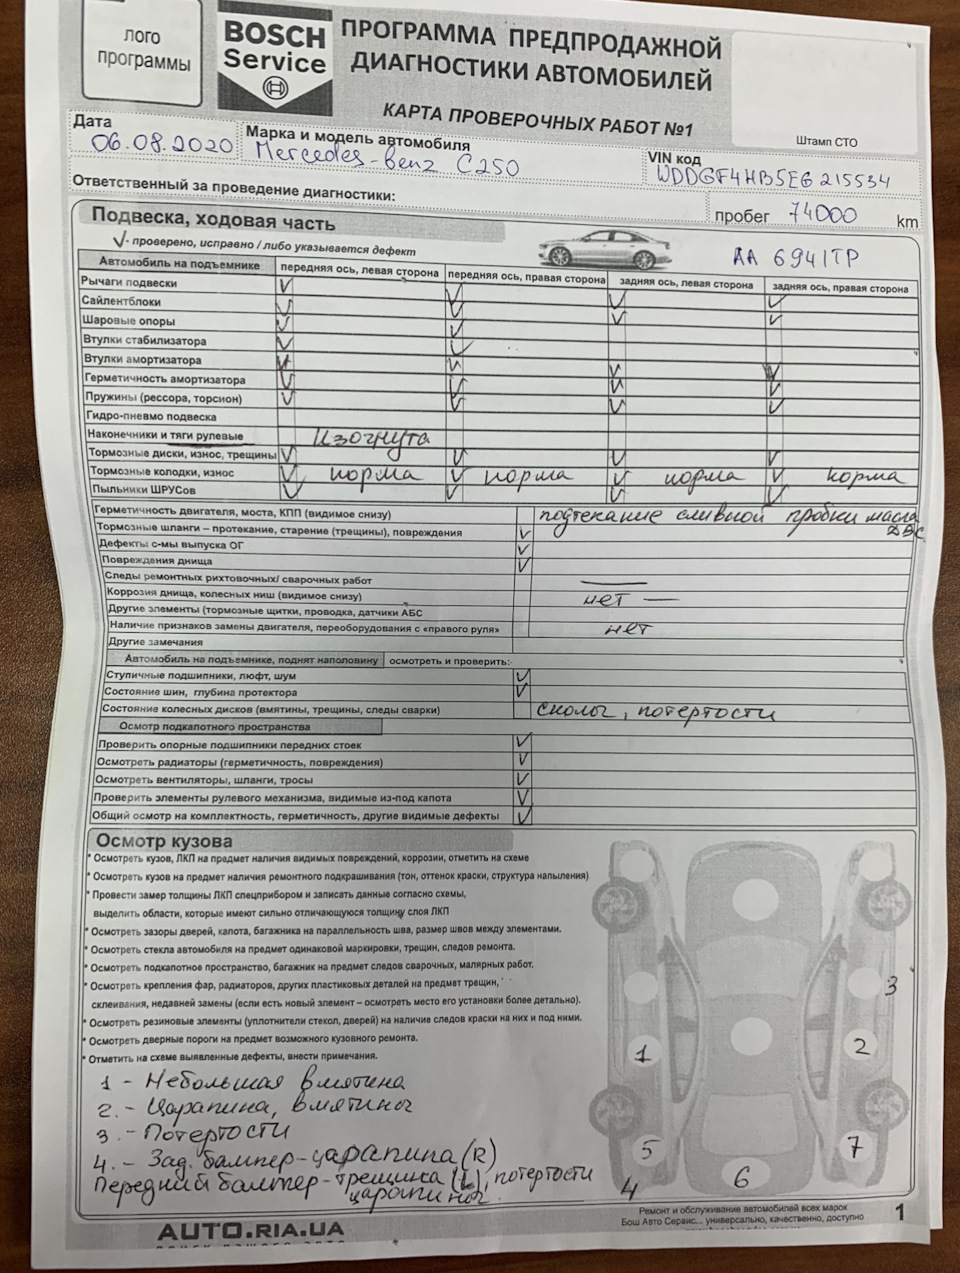 лого
программы
BOSCH
Service
ПРОГРАММА ПРЕДПРОДАЖНОЙ
ДИАГНОСТИКИ АВТОМОБИЛЕЙ
КАРТА ПРОВЕРОЧНЫХ РАБОТ №1
Штамп СТО
Дата
06.08.2020
Марка и модель автомобиля
Mercedes-Benz C250
VIN код
WDDGF4HB5EG215534
Ответственный за проведение диагностики:
пробег 74000 km
Подвеска, ходовая часть
√- проверено, исправно / либо указывается дефект
АА 6941ТР
Автомобиль на подъемнике передняя ось, левая сторона передняя ось, правая сторона задняя ось, левая сторона задняя ось, правая сторона
Рычаги подвески √ √ √ √
Сайлентблоки √ √ √ √
Шаровые опоры √ √
Втулки стабилизатора √ √
Втулки амортизатора √ √ √ √
Герметичность амортизатора √ √ √ √
Пружины (рессора, торсион) √ √ √ √
Гидро-пневмо подвеска
Наконечники и тяги рулевые изогнута
Тормозные диски, износ, трещины √ √ √ √
Тормозные колодки, износ √ норма √ норма √ норма √ норма
Пыльники ШРУСов √ √ √ √
Герметичность двигателя, моста, КПП (видимое снизу) подтекание сливной пробки масла ДВС
Тормозные шланги – протекание, старение (трещины), повреждения √
Дефекты с-мы выпуска ОГ √
Повреждения днища √
Следы ремонтных рихтовочных/ сварочных работ —
Коррозия днища, колесных ниш (видимое снизу) нет —
Другие элементы (тормозные щитки, проводка, датчики АБС
Наличие признаков замены двигателя, переоборудования с «правого руля» нет
Другие замечания
Автомобиль на подъемнике, поднят наполовину осмотреть и проверить:
Ступичные подшипники, люфт, шум √
Состояние шин, глубина протектора √
Состояние колесных дисков (вмятины, трещины, следы сварки) сколы, потертости
Осмотр подкапотного пространства
Проверить опорные подшипники передних стоек √
Осмотреть радиаторы (герметичность, повреждения) √
Осмотреть вентиляторы, шланги, тросы √
Проверить элементы рулевого механизма, видимые из-под капота √
Общий осмотр на комплектность, герметичность, другие видимые дефекты √
Осмотр кузова
* Осмотреть кузов, ЛКП на предмет наличия видимых повреждений, коррозии, отметить на схеме
* Осмотреть кузов на предмет наличия ремонтного подкрашивания (тон, оттенок краски, структура напыления)
* Провести замер толщины ЛКП спецприбором и записать данные согласно схемы,
выделить области, которые имеют сильно отличающуюся толщину слоя ЛКП
* Осмотреть зазоры дверей, капота, багажника на параллельность шва, размер швов между элементами.
* Осмотреть стекла автомобиля на предмет одинаковой маркировки, трещин, следов ремонта.
* Осмотреть подкапотное пространство, багажник на предмет следов сварочных, малярных работ.
* Осмотреть крепления фар, радиаторов, других пластиковых деталей на предмет трещин,
склеивания, недавней замены (если есть новый элемент – осмотреть место его установки более детально).
* Осмотреть резиновые элементы (уплотнители стекол, дверей) на наличие следов краски на них и под ними.
* Осмотреть дверные пороги на предмет возможного кузовного ремонта.
* Отметить на схеме выявленные дефекты, внести примечания.
3
1 2
5 6 7
4
1 - Небольшая вмятина
2. - Царапина, вмятины
3. - Потертости
4. - Зад. бампер-царапина (R)
Передний бампер-трещина (L), потертости
царапины.
AUTO.RIA.UA
Ремонт и обслуживание автомобилей всех марок
Бош Авто Сервис... универсально, качественно, доступно
1